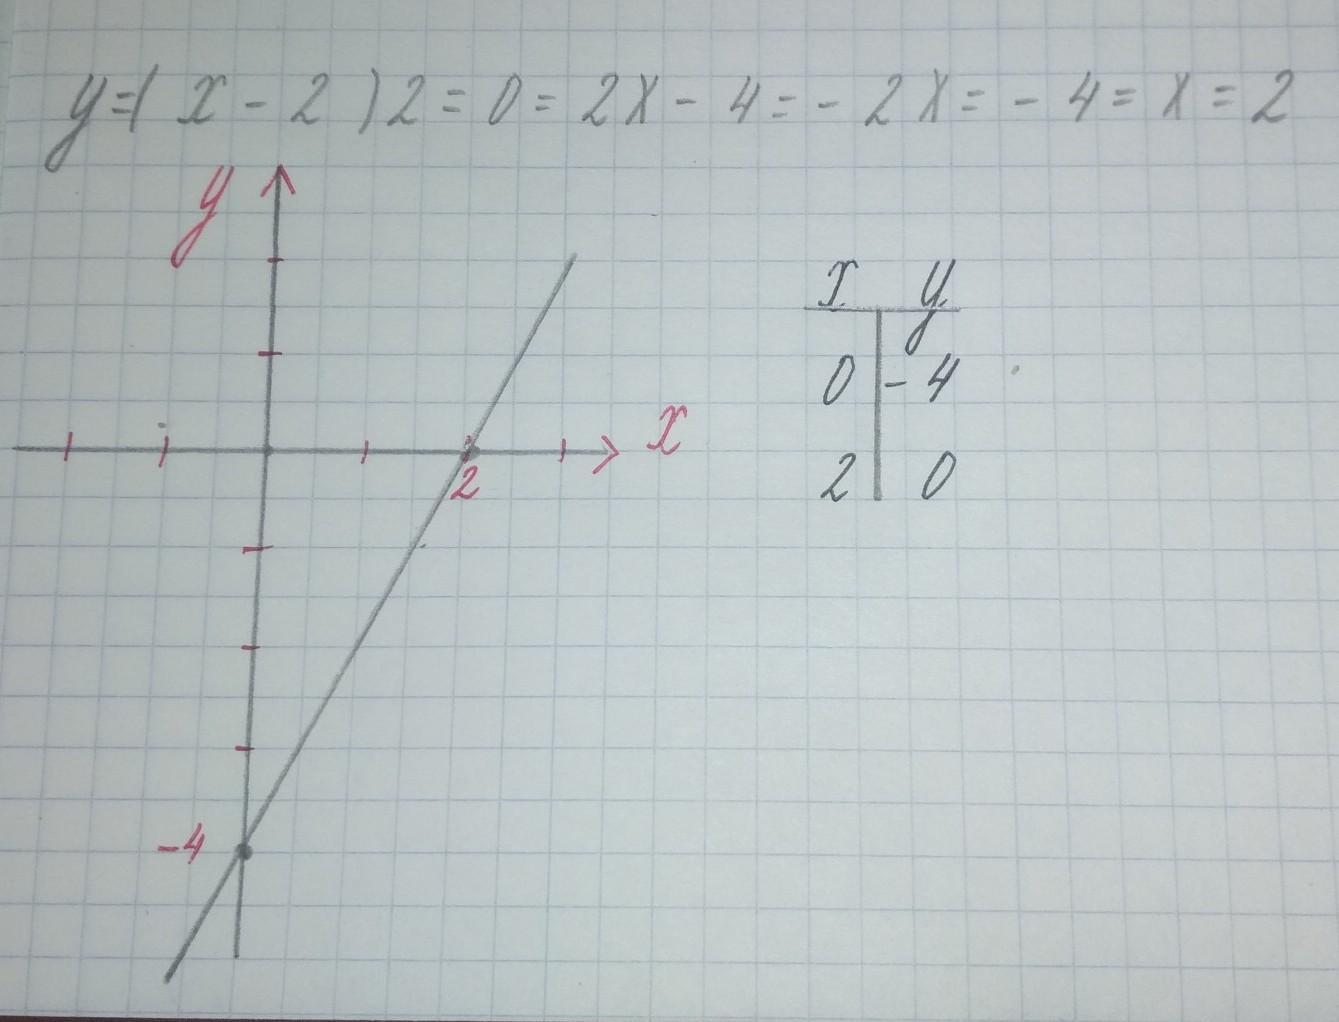 y=(x-2)2=0=2x-4=-2x=-4=x=2
y
x y
0 -4
x
2
2 0
-4